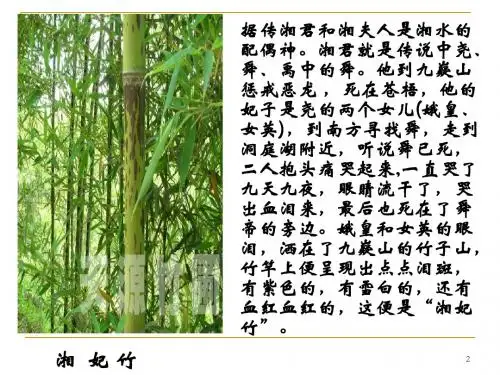 据传湘君和湘夫人是湘水的
配偶神。湘君就是传说中尧、
舜、禹中的舜。他到九嶷山
惩戒恶龙，死在苍梧，他的
妃子是尧的两个女儿(娥皇、
女英)，到南方寻找舜，走到
洞庭湖附近，听说舜已死，
二人抱头痛哭起来,一直哭了
九天九夜，眼睛流干了，哭
出血泪来，最后也死在了舜
帝的旁边。娥皇和女英的眼
泪，洒在了九嶷山的竹子山，
竹竿上便呈现出点点泪斑，
有紫色的，有雪白的，还有
血红血红的，这便是“湘妃
竹”。
湘 妃 竹
2